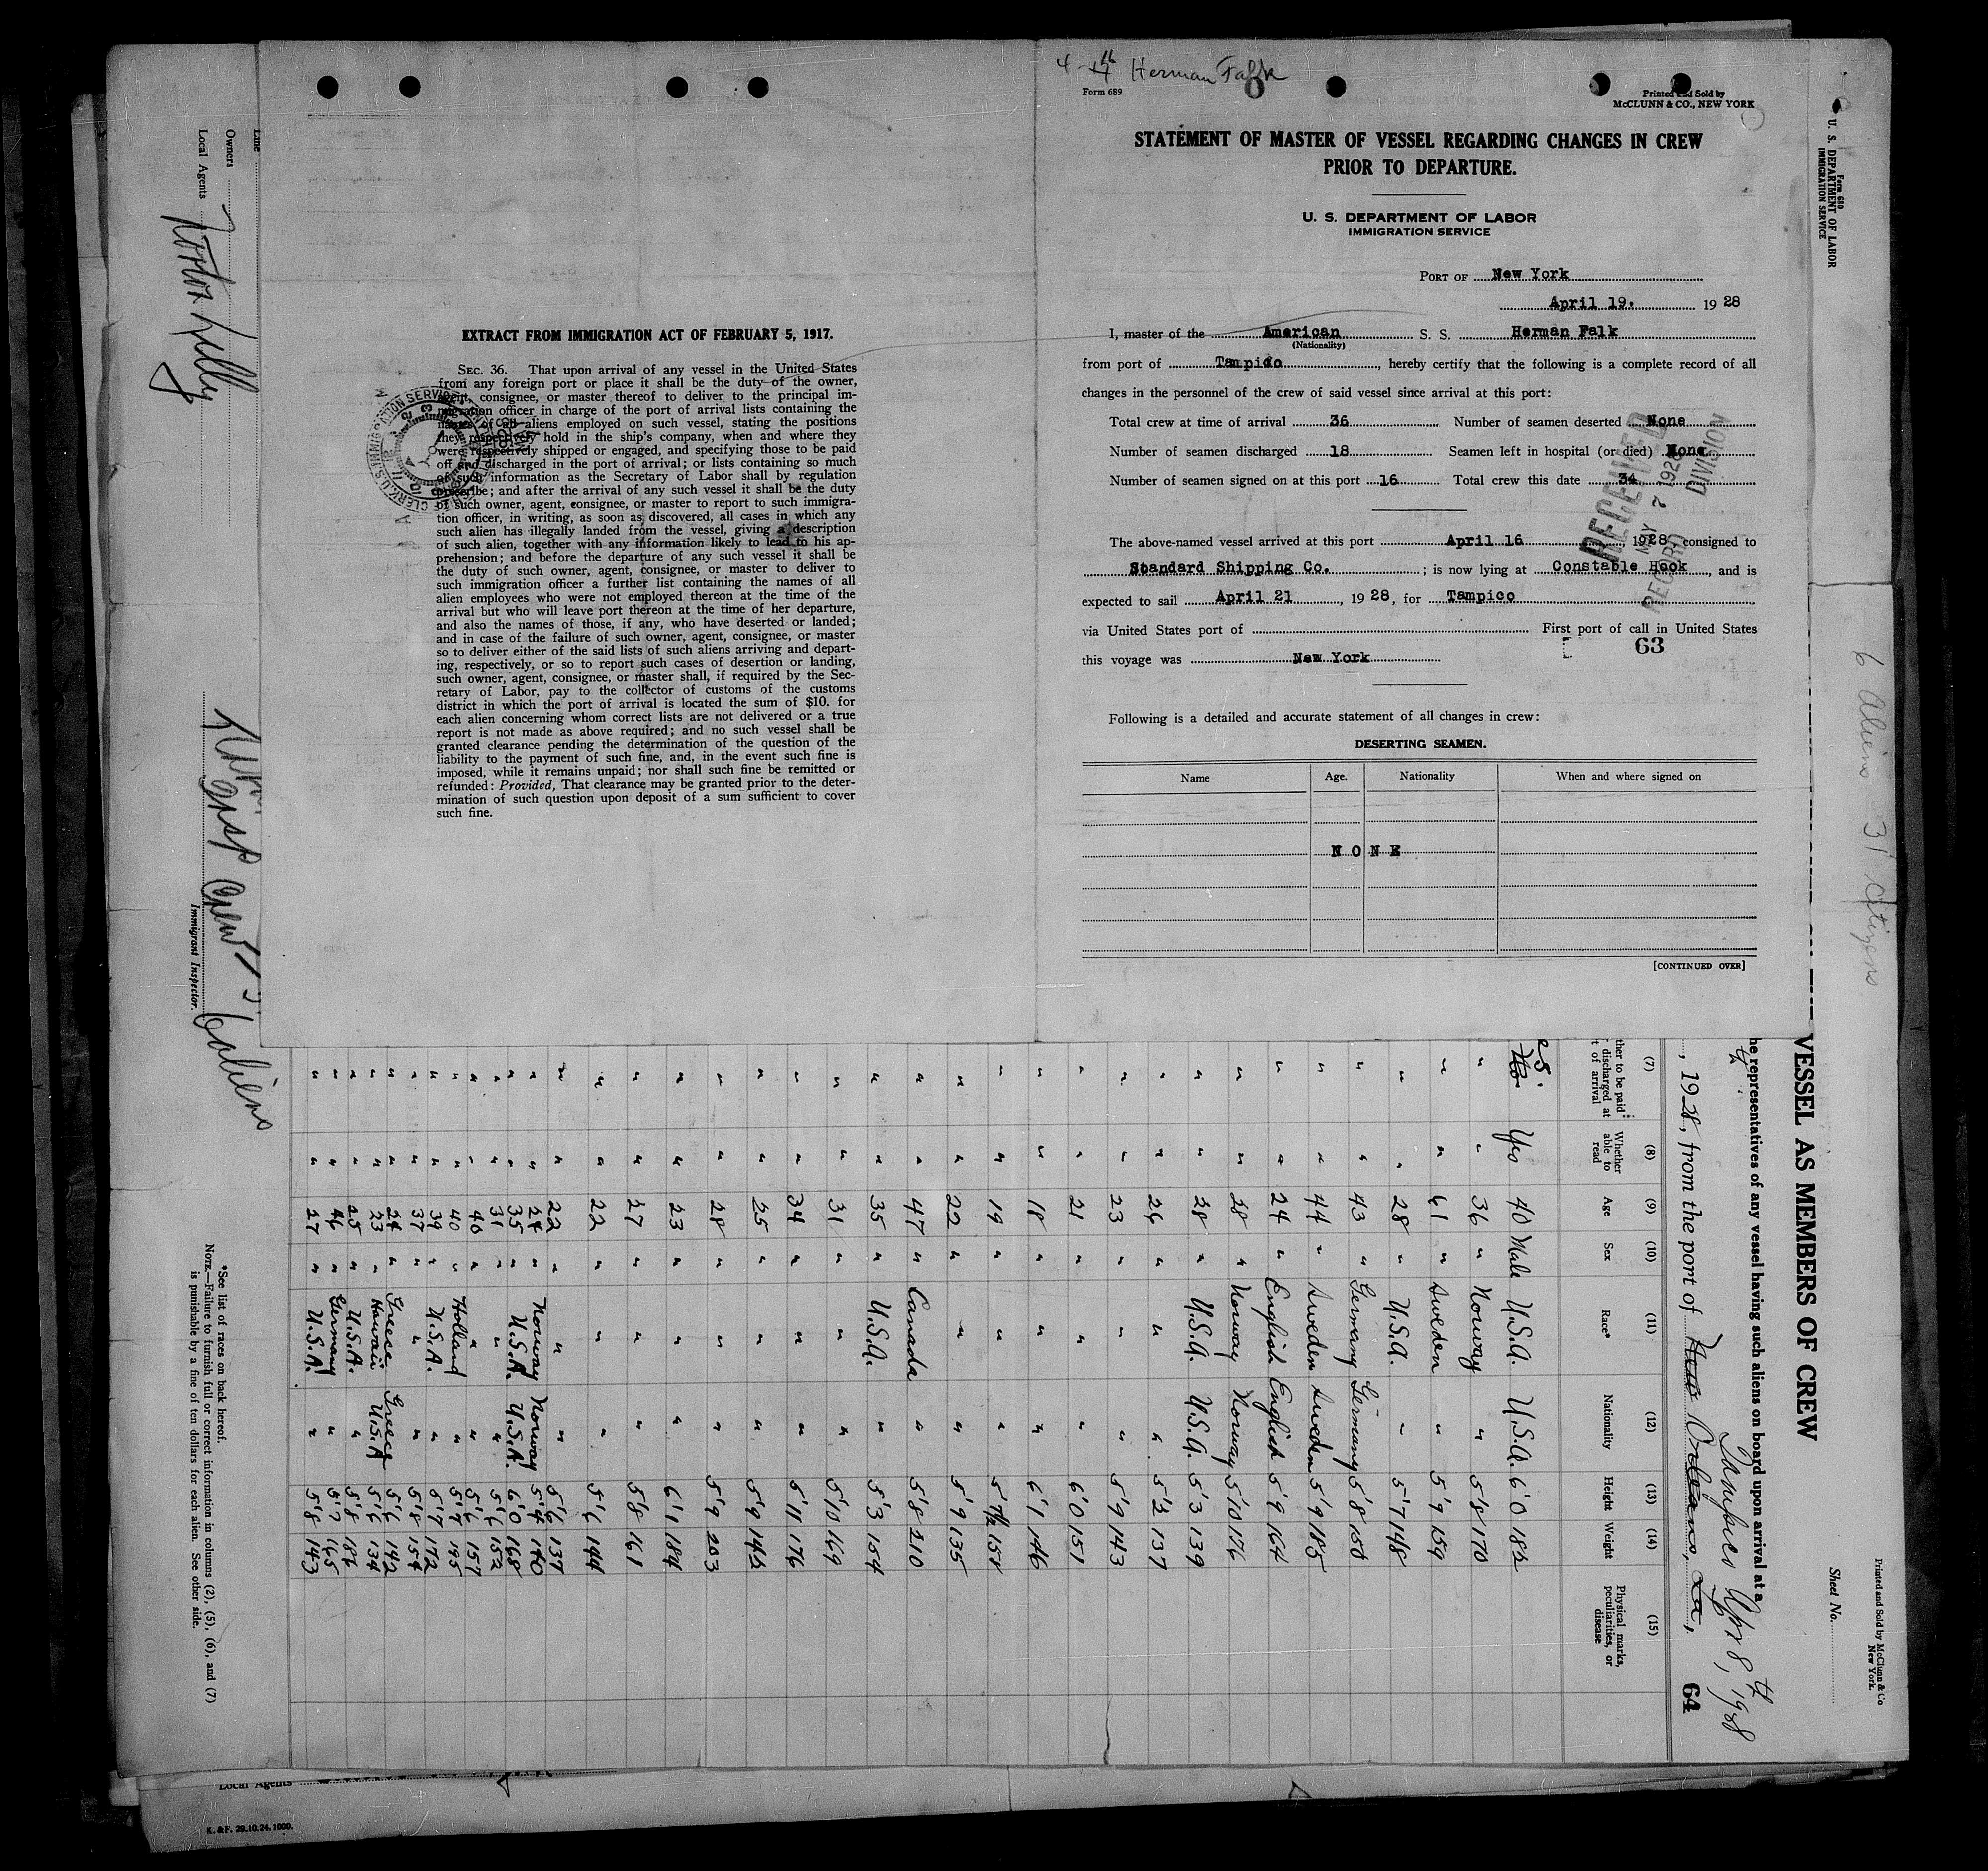 4-17th Herman Falk
Form 689
Printed and Sold by
McCLUNN & CO., NEW YORK
STATEMENT OF MASTER OF VESSEL REGARDING CHANGES IN CREW
PRIOR TO DEPARTURE.
U. S. DEPARTMENT OF LABOR
IMMIGRATION SERVICE
PORT OF New York
April 19. 1928
I, master of the American S. S. Herman Falk
(Nationality)
from port of Tampico, hereby certify that the following is a complete record of all
changes in the personnel of the crew of said vessel since arrival at this port:
Total crew at time of arrival 36 Number of seamen deserted None
Number of seamen discharged 18 Seamen left in hospital (or died) None
Number of seamen signed on at this port 16 Total crew this date 34
RECEIVED
MAY 7 1928
RECORD DIVISION
The above-named vessel arrived at this port April 16 1928 consigned to
Standard Shipping Co. ; is now lying at Constable Hook, and is
expected to sail April 21, 1928, for Tampico
via United States port of First port of call in United States
63
this voyage was New York
Following is a detailed and accurate statement of all changes in crew:
DESERTING SEAMEN.
Name Age. Nationality When and where signed on
NONE
[CONTINUED OVER]
EXTRACT FROM IMMIGRATION ACT OF FEBRUARY 5, 1917.
SEC. 36. That upon arrival of any vessel in the United States
from any foreign port or place it shall be the duty of the owner,
agent, consignee, or master thereof to deliver to the principal im-
migration officer in charge of the port of arrival lists containing the
names of all aliens employed on such vessel, stating the positions
they respectively hold in the ship's company, when and where they
were respectively shipped or engaged, and specifying those to be paid
off and discharged in the port of arrival; or lists containing so much
of such information as the Secretary of Labor shall by regulation
prescribe; and after the arrival of any such vessel it shall be the duty
of such owner, agent, consignee, or master to report to such immigra-
tion officer, in writing, as soon as discovered, all cases in which any
such alien has illegally landed from the vessel, giving a description
of such alien, together with any information likely to lead to his ap-
prehension; and before the departure of any such vessel it shall be
the duty of such owner, agent, consignee, or master to deliver to
such immigration officer a further list containing the names of all
alien employees who were not employed thereon at the time of the
arrival but who will leave port thereon at the time of her departure,
and also the names of those, if any, who have deserted or landed;
and in case of the failure of such owner, agent, consignee, or master
so to deliver either of the said lists of such aliens arriving and depart-
ing, respectively, or so to report such cases of desertion or landing,
such owner, agent, consignee, or master shall, if required by the Sec-
retary of Labor, pay to the collector of customs of the customs
district in which the port of arrival is located the sum of $10. for
each alien concerning whom correct lists are not delivered or a true
report is not made as above required; and no such vessel shall be
granted clearance pending the determination of the question of the
liability to the payment of such fine, and, in the event such fine is
imposed, while it remains unpaid; nor shall such fine be remitted or
refunded: Provided, That clearance may be granted prior to the deter-
mination of such question upon deposit of a sum sufficient to cover
such fine.
Form 680
U. S. DEPARTMENT OF LABOR
IMMIGRATION SERVICE
6 Aliens 31 Citizens
Printed and Sold by McClunn & Co
New York.
Sheet No.
VESSEL AS MEMBERS OF CREW
he representatives of any vessel having such aliens on board upon arrival at a
Tampico Apr 8th, 1928
, 1928, from the port of New Orleans, La,
64
(7) (8) (9) (10) (11) (12) (13) (14) (15)
ther to be paid discharged at t of arrival
Whether able to read
Age
Sex
Race*
Nationality
Height
Weight
Physical marks, peculiarities, or disease
es. No. Yes 40 Male U.S.A. U.S.A. 6'0 182
" " 36 " Norway " 5'8 170
" " 61 " Sweden " 5'9 159
" " 28 " U.S.A. " 5'7 148
" " 43 " Germany Germany 5'8 150
" " 44 " Sweden Sweden 5'9 185
" " 24 " English English 5'9 164
" " 28 " Norway Norway 5'10 176
" " 28 " U.S.A. U.S.A. 5'3 139
" " 26 " " " 5'2 137
" " 23 " " " 5'9 143
" " 21 " " " 6'0 151
" " 18 " " " 6'1 146
" " 19 " " " 5'7½ 158
" " 22 " " " 5'9 135
" " 47 " Canada " 5'8 210
" " 35 " U.S.A. " 5'3 154
" " 31 " " " 5'10 169
" " 34 " " " 5'11 176
" " 25 " " " 5'9 142
" " 28 " " " 5'9 203
" " 23 " " " 6'1 184
" " 27 " " " 5'8 161
" " 22 " " " 5'6 144
" " 22 " " " 5'6 137
" " 24 " Norway Norway 5'4 140
" " 35 " U.S.A. U.S.A. 6'0 168
" " 31 " " " 5'6 152
" " 40 " " " 5'6 157
" " 40 " Holland " 5'7 195
" " 39 " U.S.A. " 5'7 172
" " 37 " " " 5'8 154
" " 24 " Greece Greece 5'6 142
" " 23 " Hawaii U.S.A 5'6 134
" " 25 " U.S.A. " 5'8 186
" " 46 " Germany " 5'7 165
" " 27 " U.S.A. " 5'8 143
*See list of races on back hereof.
NOTE.—Failure to furnish full or correct information in columns (2), (5), (6), and (7)
is punishable by a fine of ten dollars for each alien. See other side.
Line
Owners
Local Agents
Immigrant Inspector.
6 aliens
Local Agents
K. & F. 29.10.24.1000.